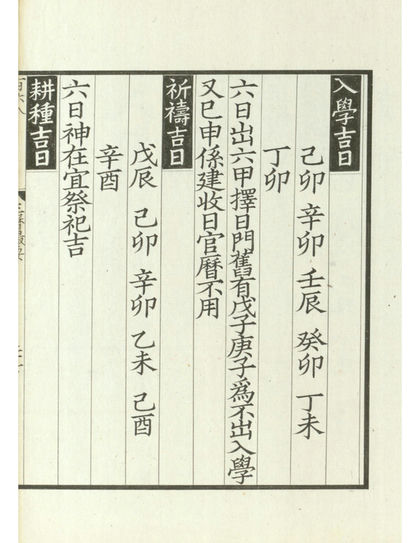 入學吉日
己卯 辛卯 壬辰 癸卯 丁未
丁卯
六日出六甲擇日門舊有戊子庚子爲不出入學
又巳申係建收日官曆不用
祈禱吉日
戊辰 己卯 辛卯 乙未 己酉
辛酉
六日神在宜祭祀吉
耕種吉日